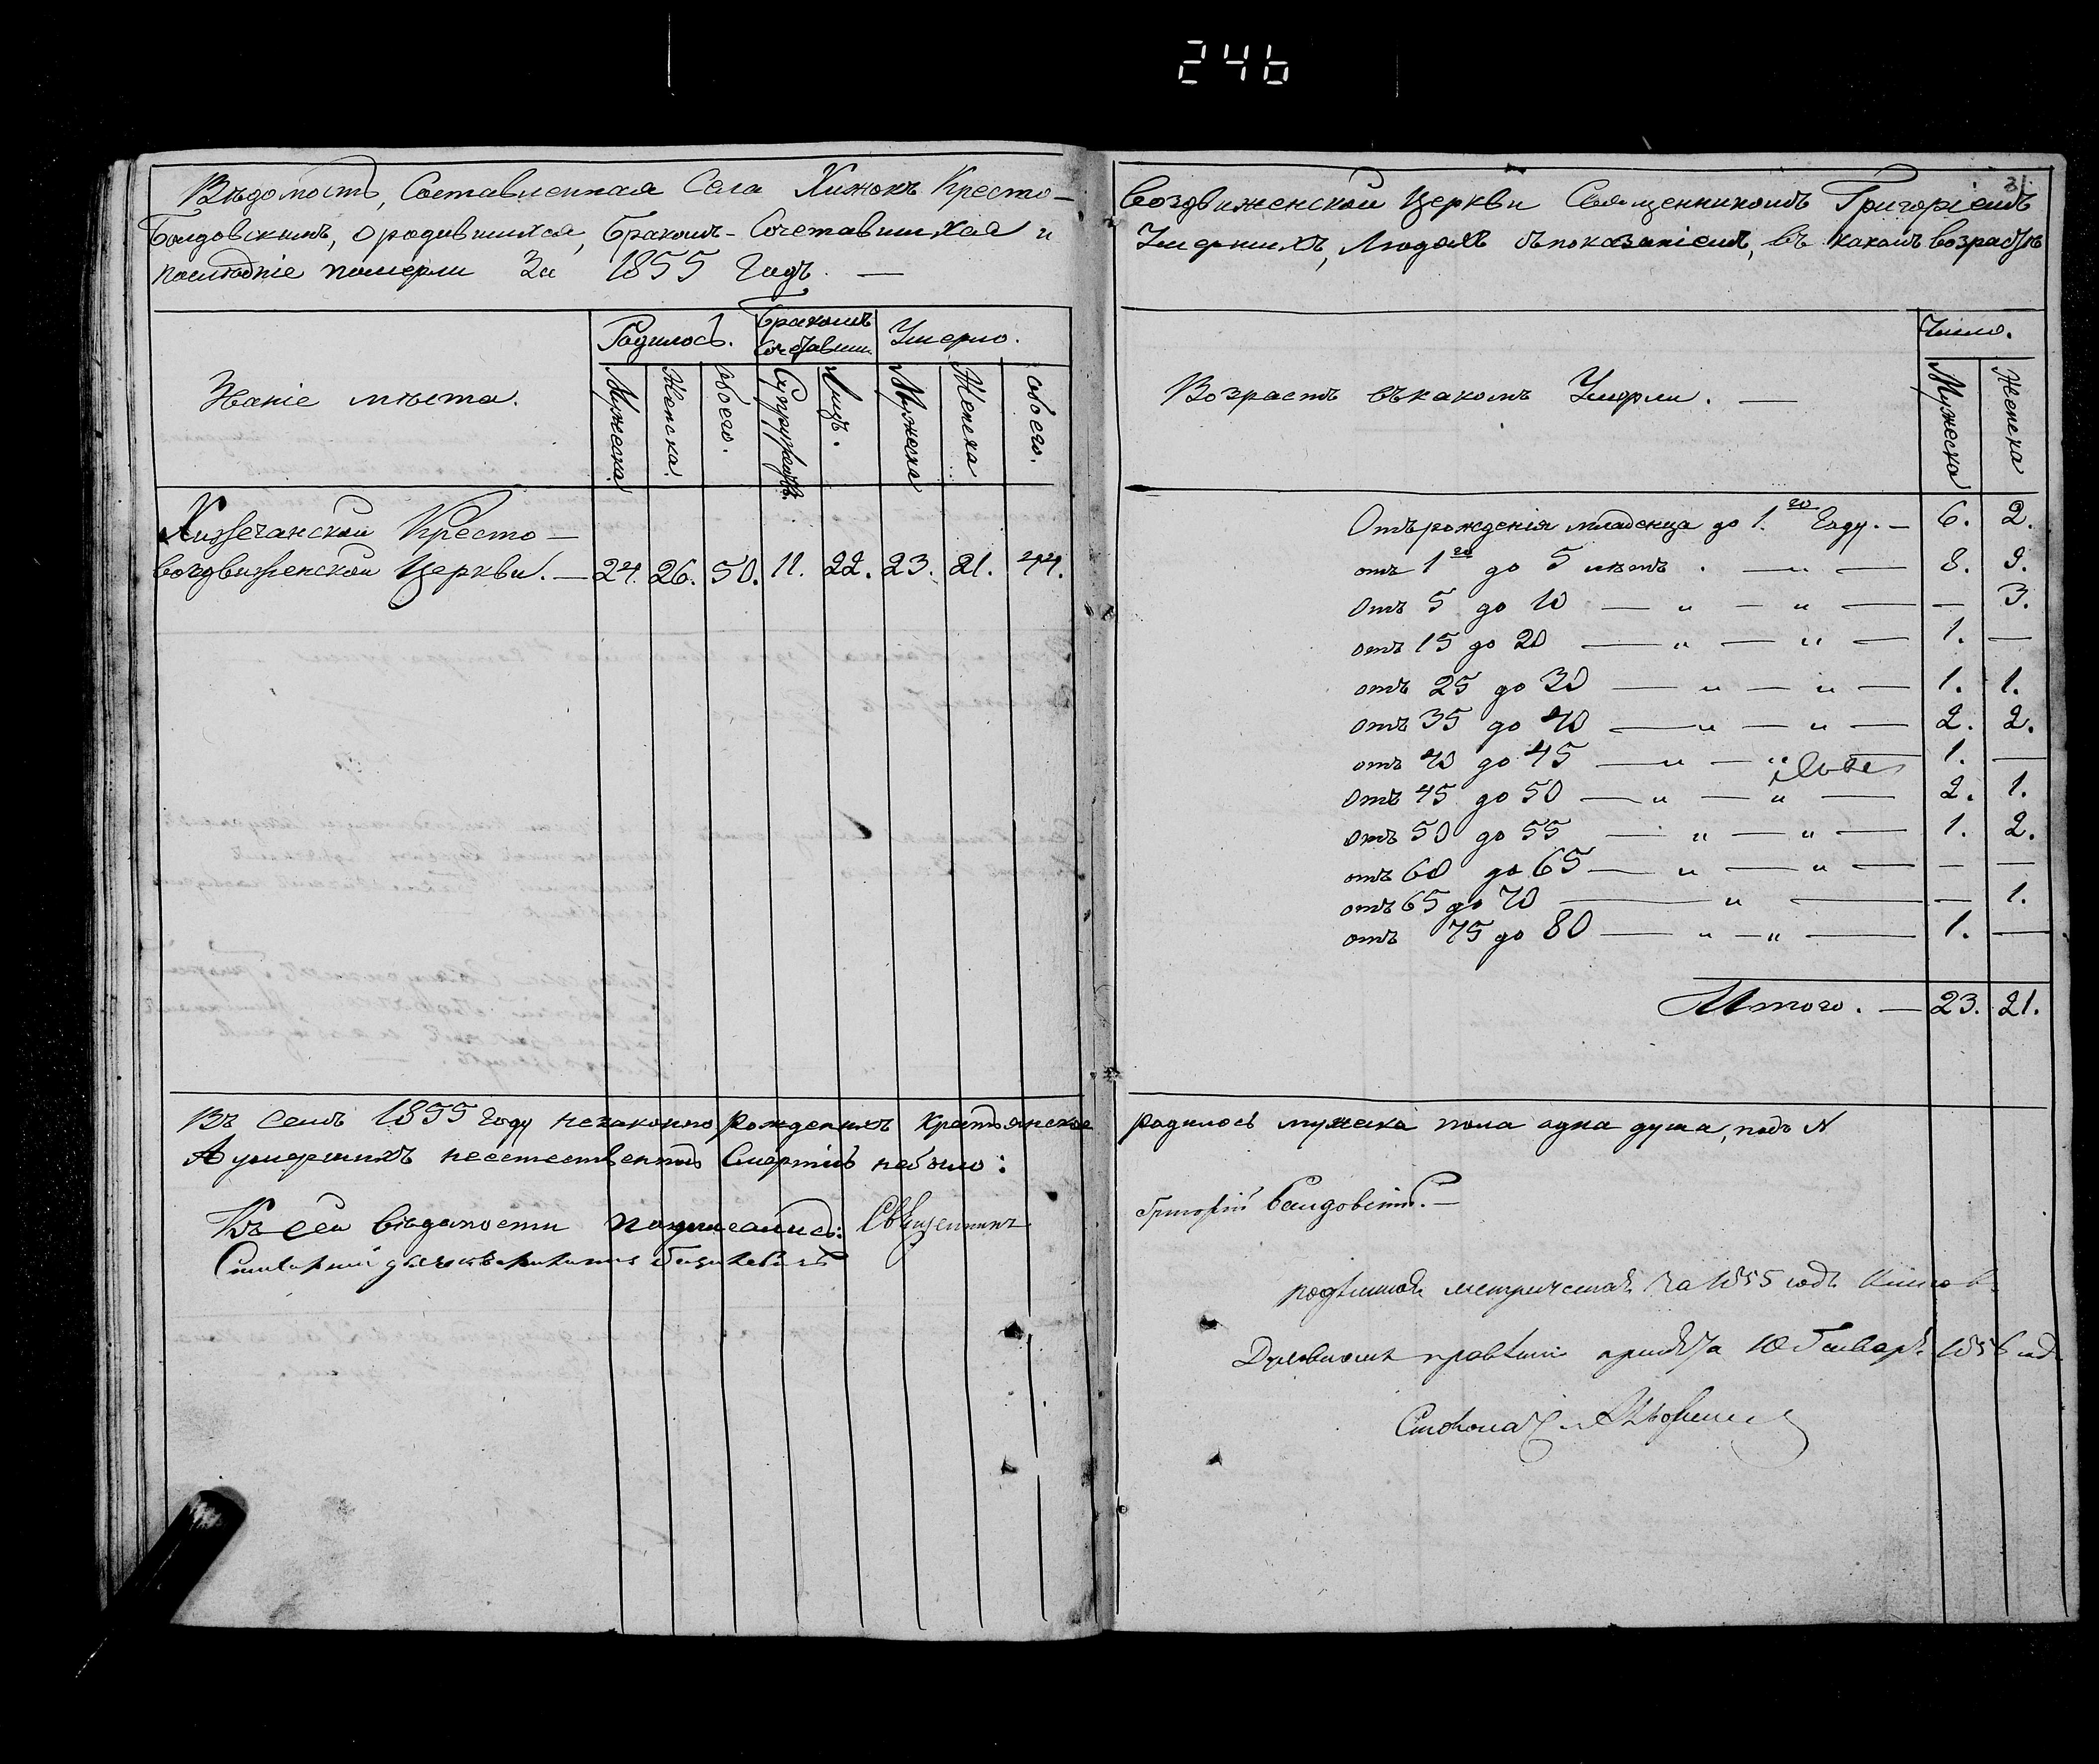 246
31.
Вѣдомость, Составленная Села Хижокъ Кресто-
Бандовскимъ, о родившихся, бракомъ-Сочетавшихся и
послѣдніе померли За 1855 Годъ. —
Званіе мѣста.
Родилось.
Бракомъ Сочетавши
Умерло.
Мужеска.
Женска.
обоего.
Супружествъ.
Лицъ.
Мужеска
Женска
обоего.
Хижечанской Кресто-
воздвиженской Церкви. — 24. 26. 50. 11. 22. 23. 21. 44.
Въ семъ 1855 году незаконно рожденныхъ
А умершихъ неестественною Смертію небыло:
Къ сей вѣдомости подписались: Священникъ
воздвиженской Церкви Священникомъ Григоріемъ
Умершихъ, Людяхъ съ показаніемъ, въ какомъ возрастѣ
Возрастъ въ какомъ Умерли. —
Число.
Мужеска
Женска
Отъ рожденія младенца до 1.го Году. — 6. 2.
отъ 1го до 5 лѣтъ . — „ — 8. 9.
Отъ 5 до 10 — „ — „ — — 3.
отъ 15 до 20 — „ — „ — 1. —
отъ 25 до 30 — „ — „ — 1. 1.
отъ 35 до 40 — „ — „ — 2. 2.
отъ 40 до 45 — „ — „ — 1. —
Отъ 45 до 50 — „ — „ — 2. 1.
Отъ 50 до 55 — „ — „ — 1. 2.
отъ 60 до 65 — „ — „ — — —
отъ 65 до 70 — „ — — 1.
отъ 75 до 80 — „ — „ — 1. —
Итого. — 23. 21.
родилось мужеска пола одна душа, подъ N
Григорій Бандовскій. —
метрическая за 1855 годъ книга
правленіи 1856